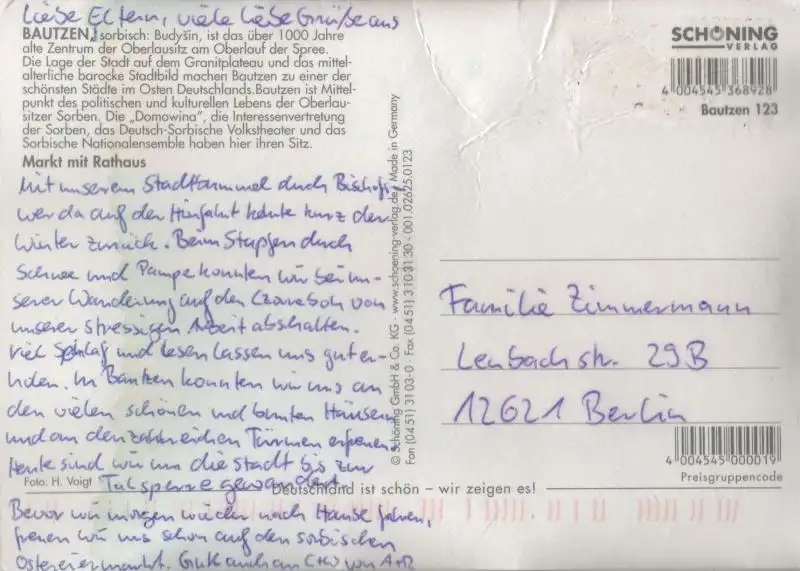 Liebe Eltern, viele liebe Grüße aus
BAUTZEN, sorbisch: Budyšin, ist das über 1000 Jahre
alte Zentrum der Oberlausitz am Oberlauf der Spree.
Die Lage der Stadt auf dem Granitplateau und das mittel-
alterliche barocke Stadtbild machen Bautzen zu einer der
schönsten Städte im Osten Deutschlands.Bautzen ist Mittel-
punkt des politischen und kulturellen Lebens der Oberlau-
sitzer Sorben. Die „Domowina", die Interessenvertretung
der Sorben, das Deutsch-Sorbische Volkstheater und das
Sorbische Nationalensemble haben hier ihren Sitz.
Markt mit Rathaus
Mit unserem Stadtbummel durch Bischofs-
werda auf der Hinfahrt kehrte kurz der
Winter zurück. Beim Stapfen durch
Schnee und Pampe konnten wir bei un-
serer Wanderung auf den Czorneboh von
unserer stressigen Arbeit abschalten.
Viel Schlaf und Lesen lassen uns gut er-
holen. In Bautzen konnten wir uns an
den vielen schönen und bunten Häusern
und an den zahlreichen Türmen erfreuen.
Heute sind wir um die Stadt bis zur
Foto: H. Voigt Talsperre gewandert.
Bevor wir morgen wieder nach Hause fahren,
freuen wir uns schon auf den sorbischen
Ostereiermarkt. Gruß auch an C+W von A+R
© Schöning GmbH & Co. KG · www.schoening-verlag.de / Made in Germany
Fon (0451) 3103-0 · Fax (0451) 3103130 - 001.02625.0123
Deutschland ist schön – wir zeigen es!
SCHÖNING
VERLAG
4 004545 368928
Bautzen 123
Familie Zimmermann
Lenbachstr. 29B
12621 Berlin
4 004545 000019
Preisgruppencode